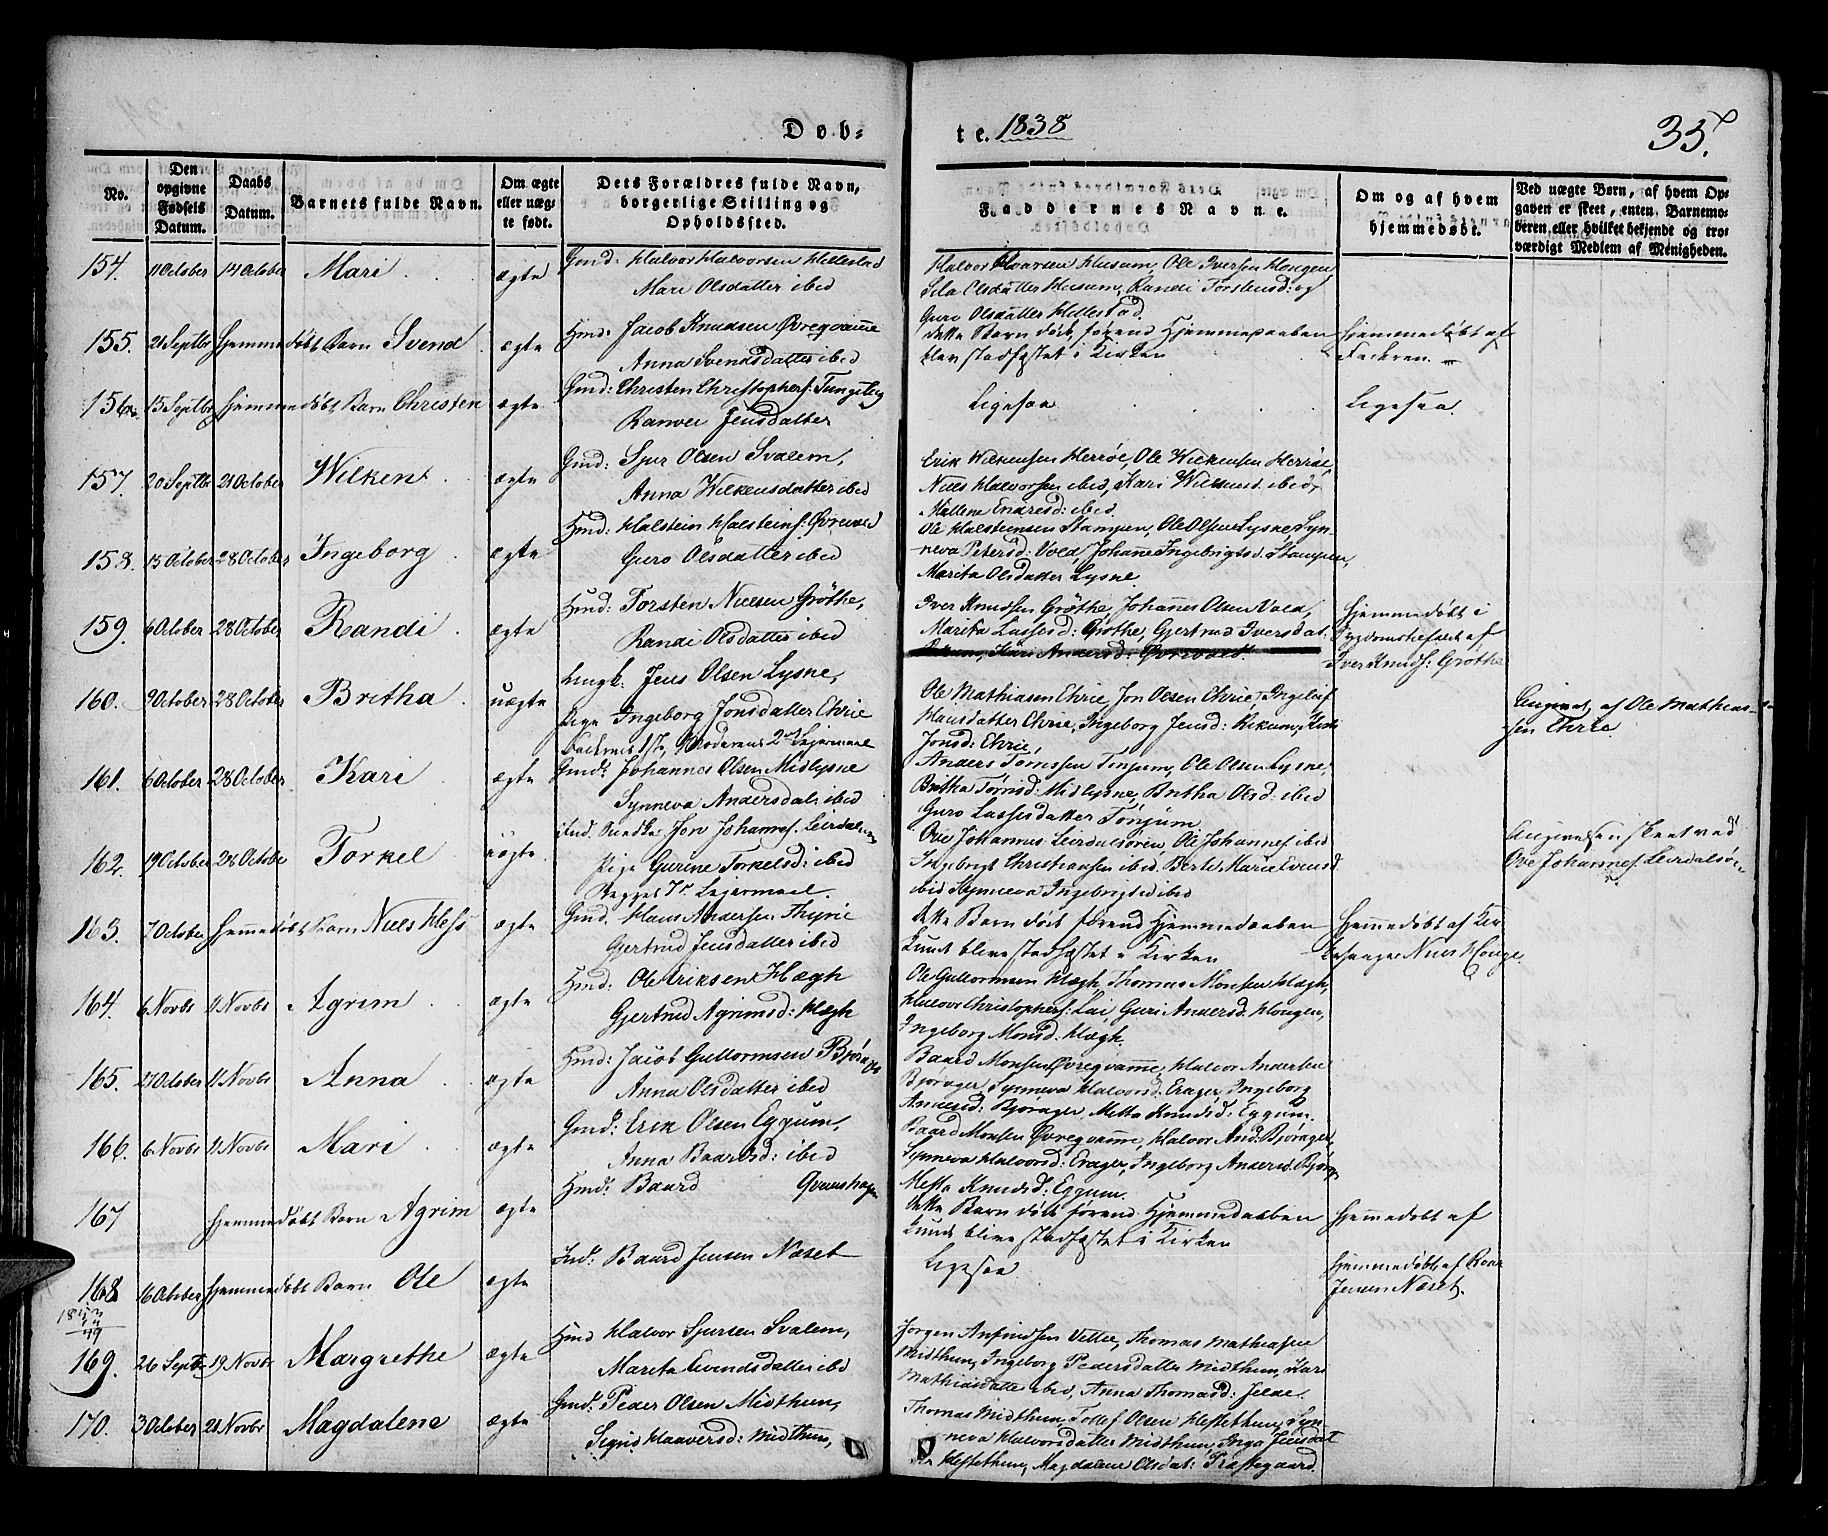 Døb-
te. 1838
35.
No.
Den opgivne Fødsels Datum.
Daabs Datum.
Barnets fulde Navn.
Om ægte eller uægte født.
Dets Forældres fulde Navn, borgerlige Stilling og Opholdssted.
Faddernes Navne.
Om og af hvem hjemmedøbt.
Ved uægte Børn, af hvem Opgaven er skeet, enten Barnemoderen eller hvilket bekjendt og troværdigt Medlem af Menigheden.
154. 11 October 14 October Mari ægte Gmd: Halvor Halvorsen Hellestad
Mari Olsdatter ibid
Halvor Haarsen Husum, Ole Iversen Hougen
Olsdatter Husum, Randi Torstensd: og
Guro Olsdatter Hellestad.
155. 21 Septbr Hjemmedøbt Barn Svend ægte Hmd: Jacob Knudsen Øvreqvamme
Anna Svendsdatter ibid
dette Barn døde førend Hjemmedaaben
blev stadfæstet i Kirken
Hjemmedøbt af
Faderen.
156. 15 Septbr Hjemmedøbt Barn Christen ægte Gmd: Christen Christophers: Tungeteig
Ranvei Jensdatter
Ligesaa
Ligesaa
157. 20 Septbr 21 October Wilkent ægte Gmd: Sjur Olsen Svalem,
Anna Wilkensdatter ibid
Erik Wilkensen Herrøe, Ole Wilkensen Herrøe,
Niels Halvorsen ibid, Kari Wilkensd. ibid,
Mallene Endresd: ibid.
158. 15 October 28 October Ingeborg ægte Hmd: Halstein Halsteins: Øvrevold
Guro Olsdatter ibid
Ole Halstensen Stampen, Ole Olsen Lysne, Syn-
neva Petersd: Vold, Johanne Ingebrigtsd. Stampen,
Marita Olsdatter Lysne.
159. 6 October 28 October Randi ægte Hmd: Torsten Nielsen Grøthe,
Randi Olsdatter ibid
Iver Knudsen Grøthe, Johannes Olsen Vold,
Marita Lassesd: Grøthe, Gjertrud Iversdat:
Kari Andersd: Øvrevold.
Hjemmedøbt i
af
Iver Knuds: Grøthe
160. 9 October 28 October Britha uægte Ungk: Jens Olsen Lysne,
Pige Ingeborg Jonsdatter Ehrie
Faderens 1ste, Moderens 2det Leiermaal
Ole Mathiasen Ehrie, Jon Olsen Ehrie, Ingeleif
Hansdatter Ehrie, Ingeborg Jensd: Rikum,
Jonsd: Ehrie,
Angivet af Ole Mathias-
sen Ehrie
161. 6 October 28 October Kari ægte Gmd: Johannes Olsen Midlysne
Synneva Andersdat: ibid
Anders Tørrissen Tinjum, Ole Olsen Lysne,
Britha Tørrisd: Midlysne, Britha Olsd: ibid
Guro Lassesdatter Tønjum
162. 19 October 28 October Torkel uægte Jon Johannes. Leirdalsøren
Pige Gurine Torkelsd: ibid
Begges 1ste Leiermaal.
Ove Johannes Leirdalsøren, Ole Johannes ibid
Ingebrigt Christiansen ibid, Berte Marie Evensd
ibid Synneva Ingebrigtsd ibid
Angivelsen skeet ved
Ove Johannes Leirdalsøren
163. 7 October Hjemmedøbt Barn Niels Hess ægte Gmd. Hans Andersen Thyrie
Gjertrud Jensdatter ibid
dette Barn døde førend Hjemmedaaben
kunde blive stadfæstet i Kirken
Hjemmedøbt af Kir-
kesanger Niels Houge.
164. 6 Novbr 11 Novbr Agrim ægte Hmd: Ole Eriksen Hægh
Gjertrud Agrimsd: Hægh
Ole Gullormsen Hægh, Thomas Monsen Hægh,
Halvor Christophers: Lai, Guri Andersd: Hougen,
Ingeborg Monsd: Hægh.
165. 27 October 11 Novbr Anna ægte Hmd: Jacob Gullormsen Bjørager
Anna Olsdatter ibid
Baard Monsen Øvreqvamme, Halvor Andersen
Bjørager, Synneva Halvorsd: Erager, Ingeborg
Andersd: Bjørager, Metta Knudsd: Eggum.
166. 6 Novbr 11 Novbr Mari ægte Gmd: Erik Olsen Eggum,
Anna Baardsd: ibid
Baard Monsen Øvreqvamme, Halvor And: Bjørager,
Synneva Halvorsd: Erager, Ingeborg Andersd. Bjørag:
Metta Knudsd: Eggum.
167 Hjemmedøbt Barn Agrim ægte Hmd: Baard
dette Barn døde førend Hjemmedaaben
kunde blive stadfæstet i Kirken
Hjemmedøbt af
168 16 October Hjemmedøbt Barn Ole ægte Ind: Baard Jensen Næset
Ligesaa
Hjemmedøbt af
Jensen Næset.
49
169. 26 Septbr 19 Novbr Margrethe ægte Hmd Halvor Sjursen Svalem,
Marita Evindsdatter ibid
Jørgen Anfindsen Vetlee, Thomas Mathiasen
Midthun, Ingeborg Pedersdatter Midthun, Kari
Mathiasdatter ibid, Anna Thomasd: Jelde.
170. 3 October 21 Novbr Magdalena ægte Gmd: Peder Olsen Midthun,
Sigrid Haaversd: Midthun,
Thomas Midthun, Tollef Olsen Hestethun, Syn-
neva Halvorsdatter Midthun, Inga Jensdat
Hestethun, Magdalene Olsdat: Præstegaard